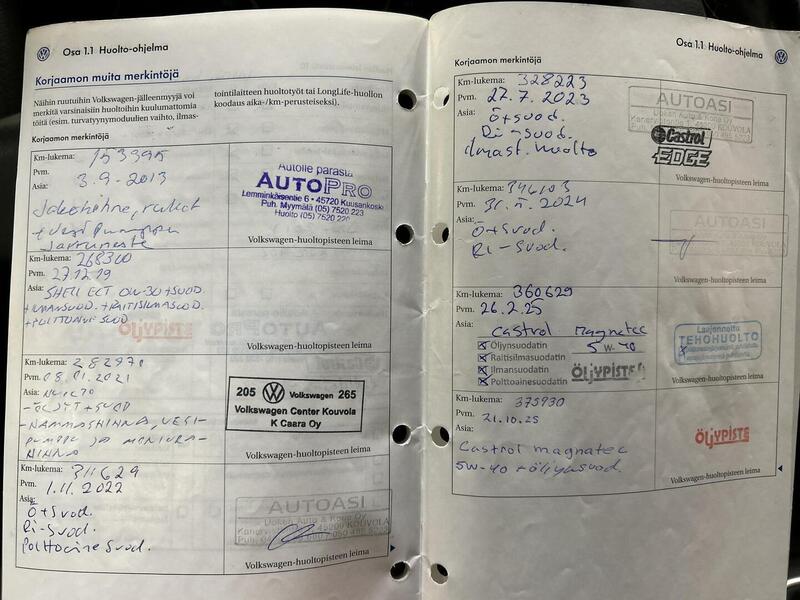 Osa 1.1 Huolto-ohjelma
Korjaamon muita merkintöjä
Näihin ruutuihin Volkswagen-jälleenmyyjä voi
merkitä varsinaisiin huoltoihin kuulumattomia
töitä (esim. turvatyynymoduulien vaihto, ilmas-
tointilaitteen huoltotyöt tai LongLife-huollon
koodaus aika-/km-perusteiseksi).
Korjaamon merkintöjä
Km-lukema: 153395
Pvm. 3.9-2013
Asia:
Jakohihna, rullat
+ vesipumppu
Jarruneste
Autolle parasta
AUTOPRO
Lemminkäisentie 6 • 45720 Kuusankoski
Puh. Myymälä (05) 7520 223
Huolto (05) 7520
Volkswagen-huoltopisteen leima
Km-lukema: 268300
Pvm. 27.12.19
Asia: SHELL ECT 0W-30 +SUOD.
+ILMANSUOD. +RAITISILMASUOD.
+POLTTOAINESUOD
Volkswagen-huoltopisteen leima
Km-lukema: 282970
Pvm. 08.01.2021
Asia:
-ÖLJYT+SUOD
-HAMMASHIHNA, VESI-
PUMPPU JA MONIURA-
HIHNA
205 Volkswagen 265
Volkswagen Center Kouvola
K Caara Oy
Volkswagen-huoltopisteen leima
Km-lukema: 311629
Pvm. 1.11.2022
Asia:
Ö+Suod.
Ri-Suod.
Polttoaine Suod.
AUTOASI
Volkswagen-huoltopisteen leima
Osa 1.1 Huolto-ohjelma
Korjaamon merkintöjä
Km-lukema: 328223
Pvm. 27.7.2023
Asia:
Ö+suod.
Ri-suod.
ilmast. huolto
AUTOASI
KOUVOLA
Castrol
EDGE
Volkswagen-huoltopisteen leima
Km-lukema:
Pvm.
Asia:
Ö+Suod.
Ri-Suod.
AUTOASI
Volkswagen-huoltopisteen leima
Km-lukema: 360629
Pvm. 26.2.25
Asia: Castrol magnatec
5W-40
Öljynsuodatin
Raitisilmasuodatin
Ilmansuodatin
Polttoainesuodatin
ÖLJYPISTE
Laajennettu
TEHOHUOLTO
Volkswagen-huoltopisteen leima
Km-lukema: 375930
Pvm. 21.10.25
Asia:
Castrol magnatec
5W-40 +öljynsuod.
ÖLJYPISTE
Volkswagen-huoltopisteen leima